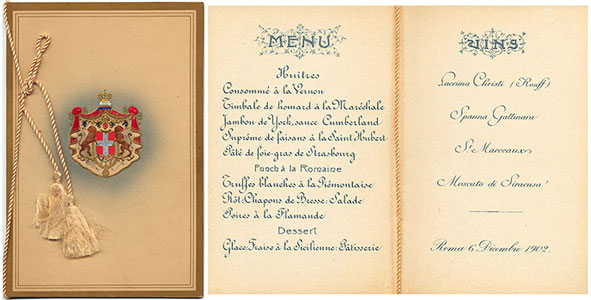 MENU
Huîtres
Consommé à la Vernon
Timbale de homard à la Maréchale
Jambon de York, sauce Cumberland
Suprême de faisans à la Saint Hubert
Pâté de foie-gras de Strasbourg
Punch à la Romaine
Truffes blanches à la Piémontaise
Rôt: Chapons de Bresse-Salade
Poires à la Flamande
Dessert
Glace Fraise à la Sicilienne-Pâtisserie
VINS
Lacrima Christi (Rouff)
Spanna Gattinara
St Marceaux
Moscato di Siracusa
Roma 6 Dicembre 1902.